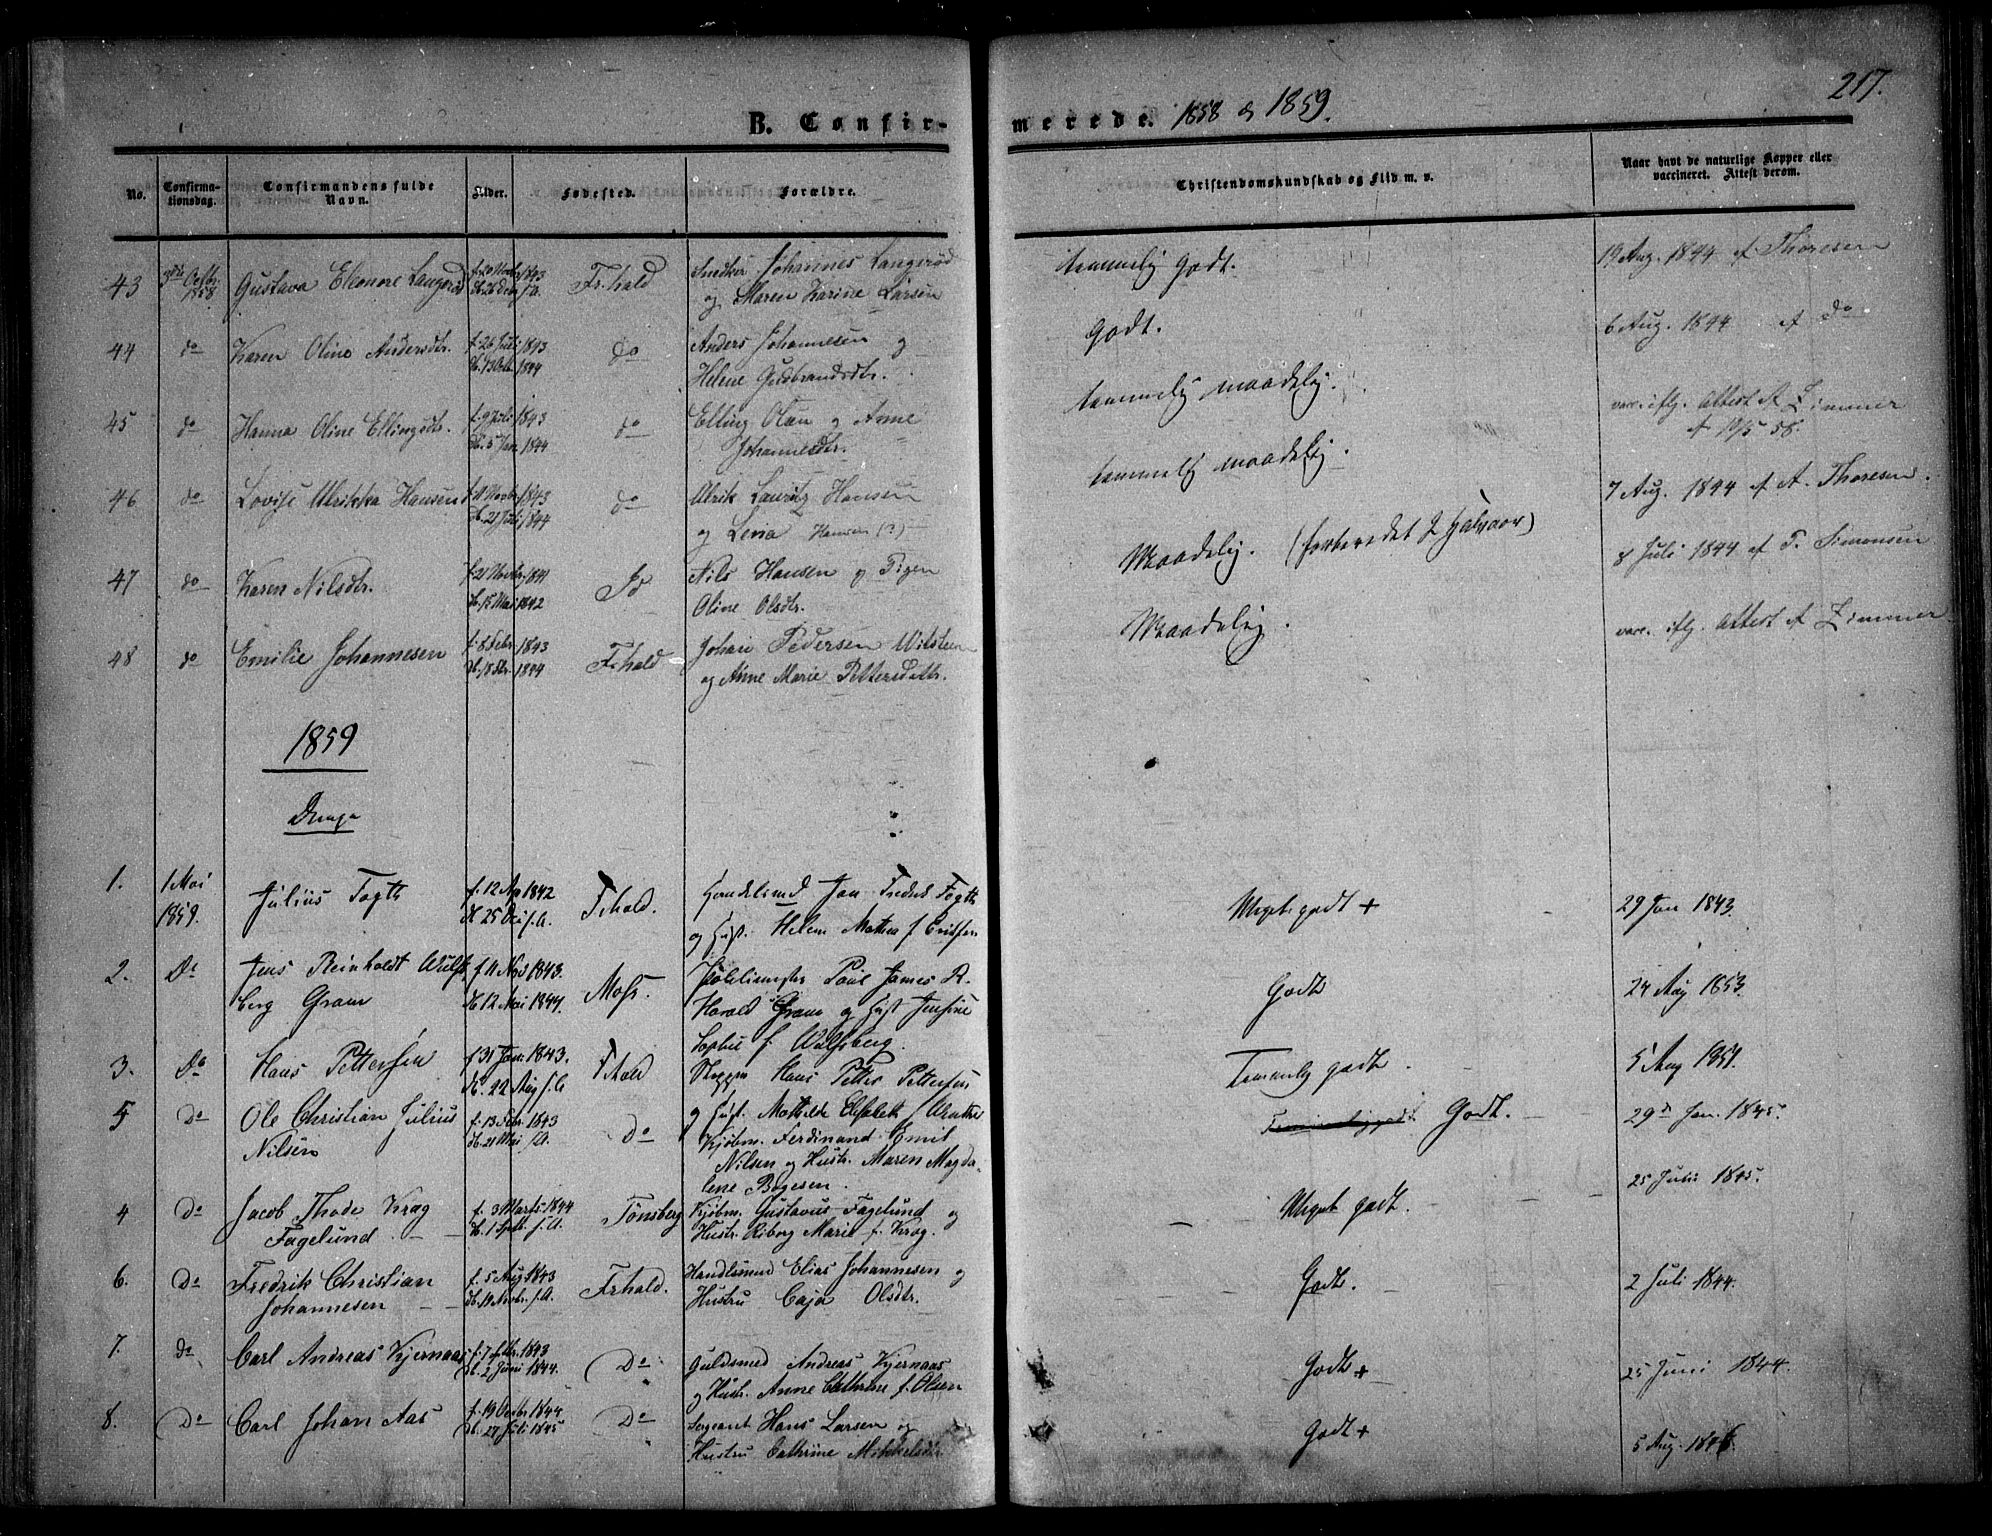 217.
B. Confirmerede. 1858 & 1859.
No.
Confirmationsdag.
Confirmandens fulde Navn.
Alder.
Fødested.
Forældre.
Christendomskundskab og Flid m. v.
Naar havt de naturlige Kopper eller vaccineret. Attest derom.
43 3die Octbr. 1858. Gustava Eleonore Langerød f. 20 Novbr 1843 Fr.hald Snedker Johannes Langerød temmelig Godt. 19 Aug. 1844 af Thoresen
og Maren Karine Larsen
44 do Karen Oline Andersdtr. f. 26 Juli 1843 do Anders Johannesen og Godt. 6 Aug. 1844 af do
db. 13 Octb. 1844 Helene Gudbrandsdtr.
45 do Hanna Oline Ellingsdtr. f. 9 Juli 1843 do Elling Olsen og Anne temmelig maadelig. vacc. iflg. Attest af Zimmer
db. 5 Jan. 1844 Johannesdtr. af 19/5 58.
46 do Lovise Ulrikka Hansen f. 11 Novbr 1843 do Ulrik Lauritz Hansen temmelig maadelig. 7 Aug. 1844 af A. Thoresen.
db. 21 Juli 1844 og Lena Hansen (?)
47 do Karen Nilsdtr. f. 21 Novbr 1841 Nils Hansen og Pigen Maadelig. (forberedet 2 Halvaar) 8 Juli 1844 af P. Simonsen
db. 15 Mai 1842 Oline Olsdtr.
48 do Emilie Johannesen f. 6 Febr. 1843 Fr.hald Johan Pedersen Wilsteen Maadelig. vacc. iflg. Attest af Zimmer
1844 og Anne Marie Pettersdattr.
1859
Drenge
1. 1 Mai 1859. Julius Fogth f. 12 Ap 1842 Frhald. Handelsmd Jan Fredrik Fogth Meget godt + 29 Jan 1843.
db 25 Dec. s.A. og Hust. Helene Mathea f. Eriksen
2. Do Jens Reinholdt Wulfsberg Gram f 11 Nov 1843. Moss. Politimester Poul James R. Godt 24 Aug 1853.
db. 12 Mai 1844. Harald Gram og Hust Jensine
Sophie f. Wulfsberg.
3. Do Hans Pettersen f 31 Jan: 1843. Frhald Skipper Hans Petter Pettersen Temmelig godt. 5 Aug 1851.
db. 22 Aug s.A. og Hust. Mathilde Elisabeth f.
5 Do Ole Christian Julius f. 13 Febr. 1843 Do Kjøbm. Ferdinand Emil Godt. 29d Jan. 1845.
Nilsen db. 21 Mai s.A. Nilsen og Hustr. Maren Magdalene Bøgesen.
4 Do Jacob Thode Krag f. 3 Marts 1844 Tønsberg Kjøbm. Gustavus Fagelund og Meget godt. 25 Julii 1845.
Fagelund. db. 1 Septbr. s.A. Hustr. Riborg Marie f. Krag.
6. Do Fredrik Christian f. 5 Aug 1843 Frhald. Handlsmnd Elias Johannesen og Godt. 2 Juli 1844.
Johannesen db. 19 Novbr. s.A. Hustru Caja Olsdtr.
7. do Carl Andreas Kjernaas 1843 Do Guldsmed Andreas Kjernaas Godt + 25 Juni 1844.
db. 2 Juni 1844. og Hustr. Anne Cathrine f. Olsen
8. Do Carl Johan Aas f. 19 Octbr 1844 Do Sergeant Hans Larsen og Godt + 5 Aug. 1846.
db. 27 Juli 1845 Hustru Cathrine Mikkelsdtr